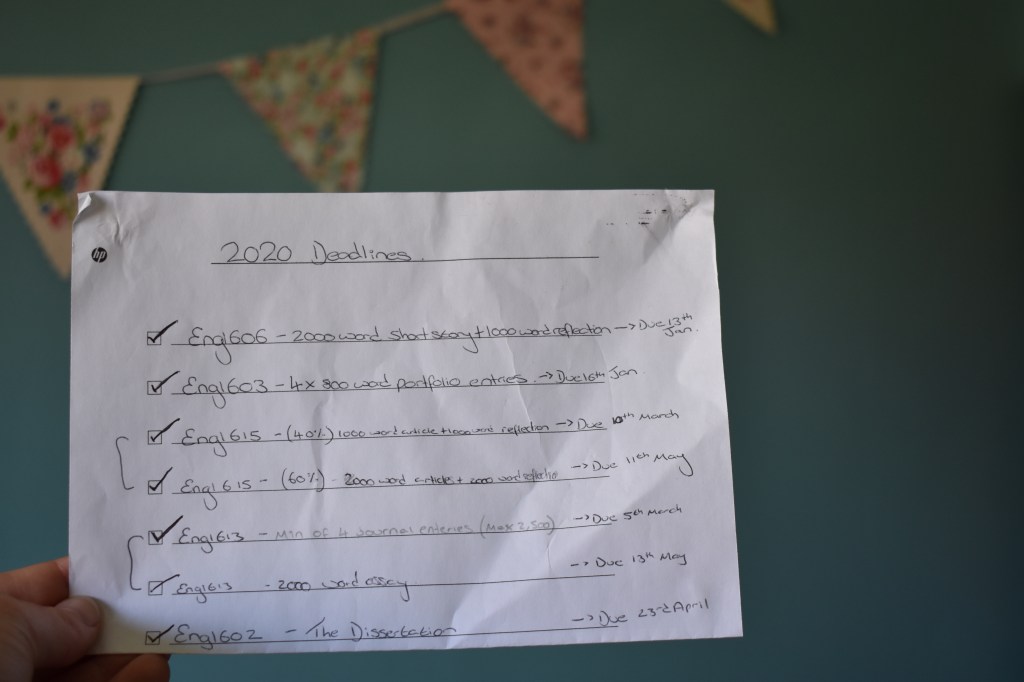 hp
2020 Deadlines
Engl606 - 2000 word short story + 1000 word reflection -> Due 13th Jan.
Engl603 - 4x 800 word portfolio entries. -> Due 16th Jan
Engl615 - (40%) 1000 word article + 1000 word reflection -> Due 10th March
Engl615 - (60%) - 2000 word articles + word reflection -> Due 11th May
Engl613 - Min of 4 Journal enteries (Max 2,500) -> Due 5th March
Engl613 - 2000 word essay -> Due 13th May
Engl602 - The Dissertation -> Due 23rd April